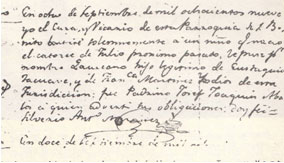 En ocho de Septiembre de mil ochocientos nueve
yo el Cura, y Vicario de esta Parroquia de S. B.
nito bautizé solemnemente a un niño q.e nacio
el catorce de Julio proximo pasado, le puse p.r
nombre Laureano hijo legitimo de Eustaquio
y de Fran.ca Martines Yndios de esta
Jurisdiccion: fue Padrino Josef Joaquin
a quien advertí las obligaciones: doy fé
Ant.o
En doce de Septiembre de mil